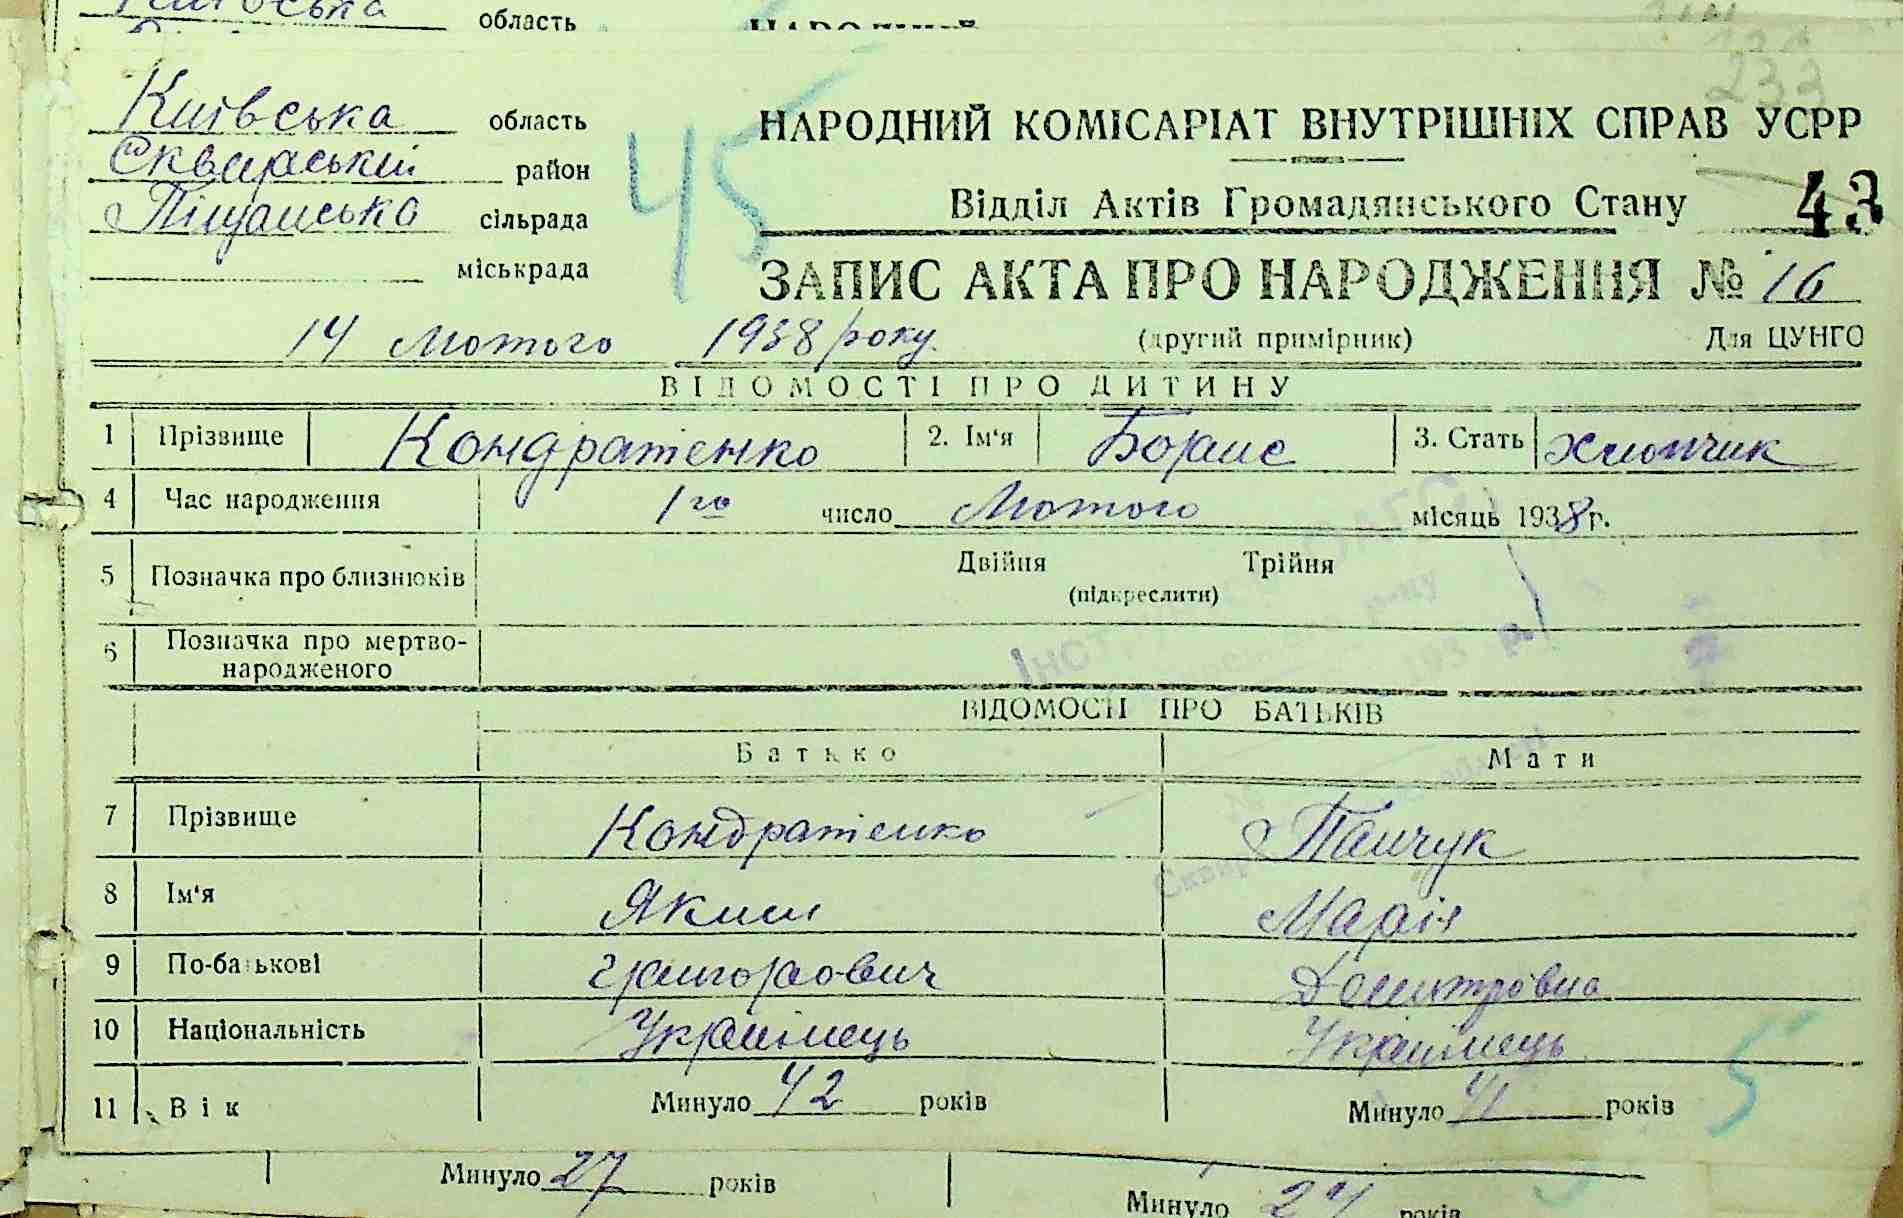 область
Київська область
Сквирський район
Піщанська сільрада
міськрада
45
233
НАРОДНИЙ КОМІСАРІАТ ВНУТРІШНІХ СПРАВ УСРР
Відділ Актів Громадянського Стану 43
ЗАПИС АКТА ПРО НАРОДЖЕННЯ № 16
14 Лютого 1938 року. (другий примірник) Для ЦУНГО
ВІДОМОСТІ ПРО ДИТИНУ
1 Прізвище Кондратенко 2. Ім'я Борис 3. Стать Хлопчик
4 Час народження 1го число Лютого місяць 1938 р.
5 Позначка про близнюків Двійня Трійня
(підкреслити)
6 Позначка про мертво-
народженого
Інст.
193 р.
ВІДОМОСТІ ПРО БАТЬКІВ
Батько Мати
7 Прізвище Кондратенко Панчук
8 Ім'я Яким Марія
9 По-батькові Григорович Дмитровна
10 Національність Українець Українець
11 Вік Минуло 42 років Минуло 41 років
5
Минуло 27 років Минуло років